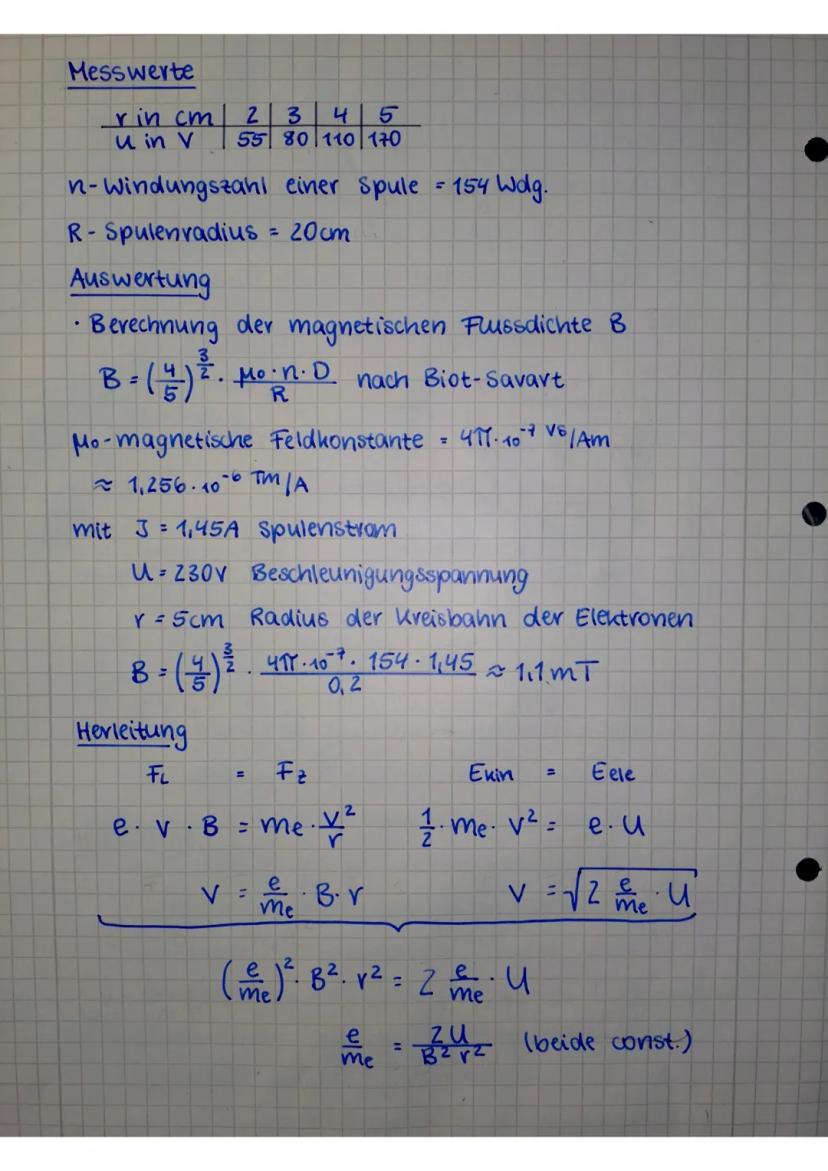 Messwerte
r in cm | 2 | 3 | 4 | 5
U in V | 55 | 80 | 110 | 170
n-Windungszahl einer Spule = 154 Wdg.
R - Spulenradius = 20cm
Auswertung
· Berechnung der magnetischen Flussdichte B
B = (4/5)^(3/2) · μ₀·n·D/R nach Biot-Savart
μ₀-magnetische Feldkonstante = 4π·10⁻⁷ Vs/Am
≈ 1,256·10⁻⁶ Tm/A
mit J = 1,45A Spulenstrom
U = 230V Beschleunigungsspannung
r = 5cm Radius der Kreisbahn der Elektronen
B = (4/5)^(3/2) · 4π·10⁻⁷·154·1,45/0,2 ≈ 1,1mT
Herleitung
F_L = F_z E_kin = E_ele
e · v · B = m_e · v²/r 1/2 · m_e · v² = e · U
v = e/m_e · B · r v = √(2 e/m_e · U)
(e/m_e)² · B² · r² = 2 e/m_e · U
e/m_e = 2U/B²r² (beide const.)